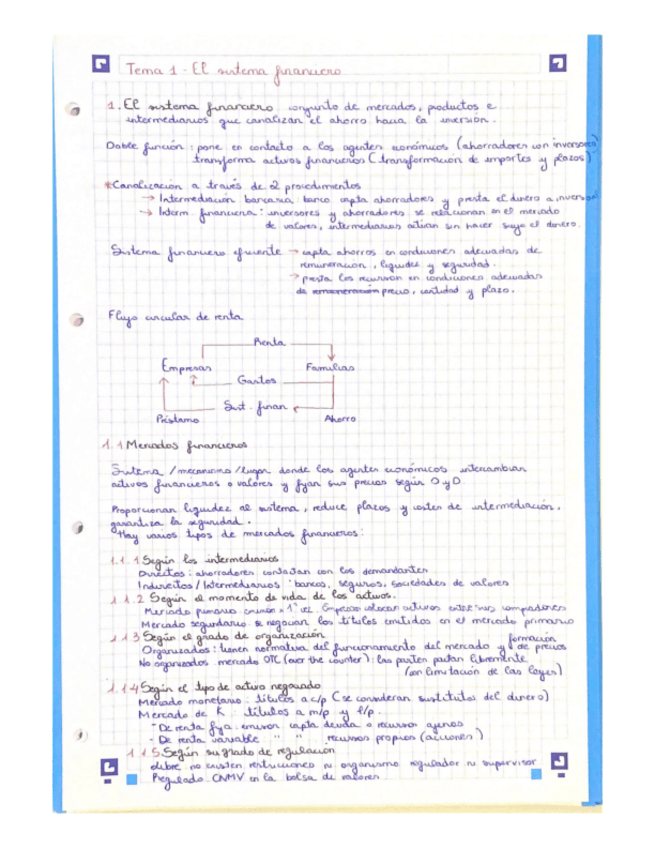 Tema 1 - El sistema financiero
1. El sistema financiero conjunto de mercados, productos e
intermediarios que canalizan el ahorro hacia la inversión.
Doble función: pone en contacto a los agentes económicos (ahorradores con inversores)
transforma activos financieros (transformación de importes y plazos)
*Canalización a través de 2 procedimientos
→ Intermediación bancaria: banco capta ahorradores y presta el dinero a inversores
→ Interm. financiera: inversores y ahorradores se relacionan en el mercado
de valores, intermediarios actúan sin hacer suyo el dinero.
Sistema financiero eficiente → capta ahorros en condiciones adecuadas de
remuneración, liquidez y seguridad.
→ presta los recursos en condiciones adecuadas
de remuneración precio, cantidad y plazo.
Flujo circular de renta
Renta
Empresas Familias
Gastos
Sist. finan
Préstamo Ahorro
1.1 Mercados financieros
Sistema / mecanismo / lugar donde los agentes económicos intercambian
activos financieros o valores y fijan sus precios según O y D.
Proporcionan liquidez al sistema, reduce plazos y costes de intermediación.
garantiza la seguridad.
Hay varios tipos de mercados financieros:
1.1.1 Según los intermediarios
Directos: ahorradores contactan con los demandantes
Indirectos / Intermediarios: bancos, seguros, sociedades de valores
1.1.2 Según el momento de vida de los activos.
Mercado primario emisión x 1ª vez. Empresas colocan activos entre sus compradores
Mercado segundario: se negocian los títulos emitidos en el mercado primario
1.1.3 Según el grado de organización
Organizados: tienen normativa del funcionamiento del mercado y formación de precios
No organizados: mercado OTC (over the counter): las partes pactan libremente
(con limitación de las leyes)
1.1.4 Según el tipo de activo negociado
Mercado monetario: títulos a c/p (se consideran sustitutos del dinero)
Mercado de K: títulos a m/p y l/p.
- De renta fija: emisor capta deuda o recursos ajenos
- De renta variable " " recursos propios (acciones)
1.1.5 Según su grado de regulación
Libre: no existen restricciones ni organismo regulador ni supervisor
Regulado: CNMV en la bolsa de valores